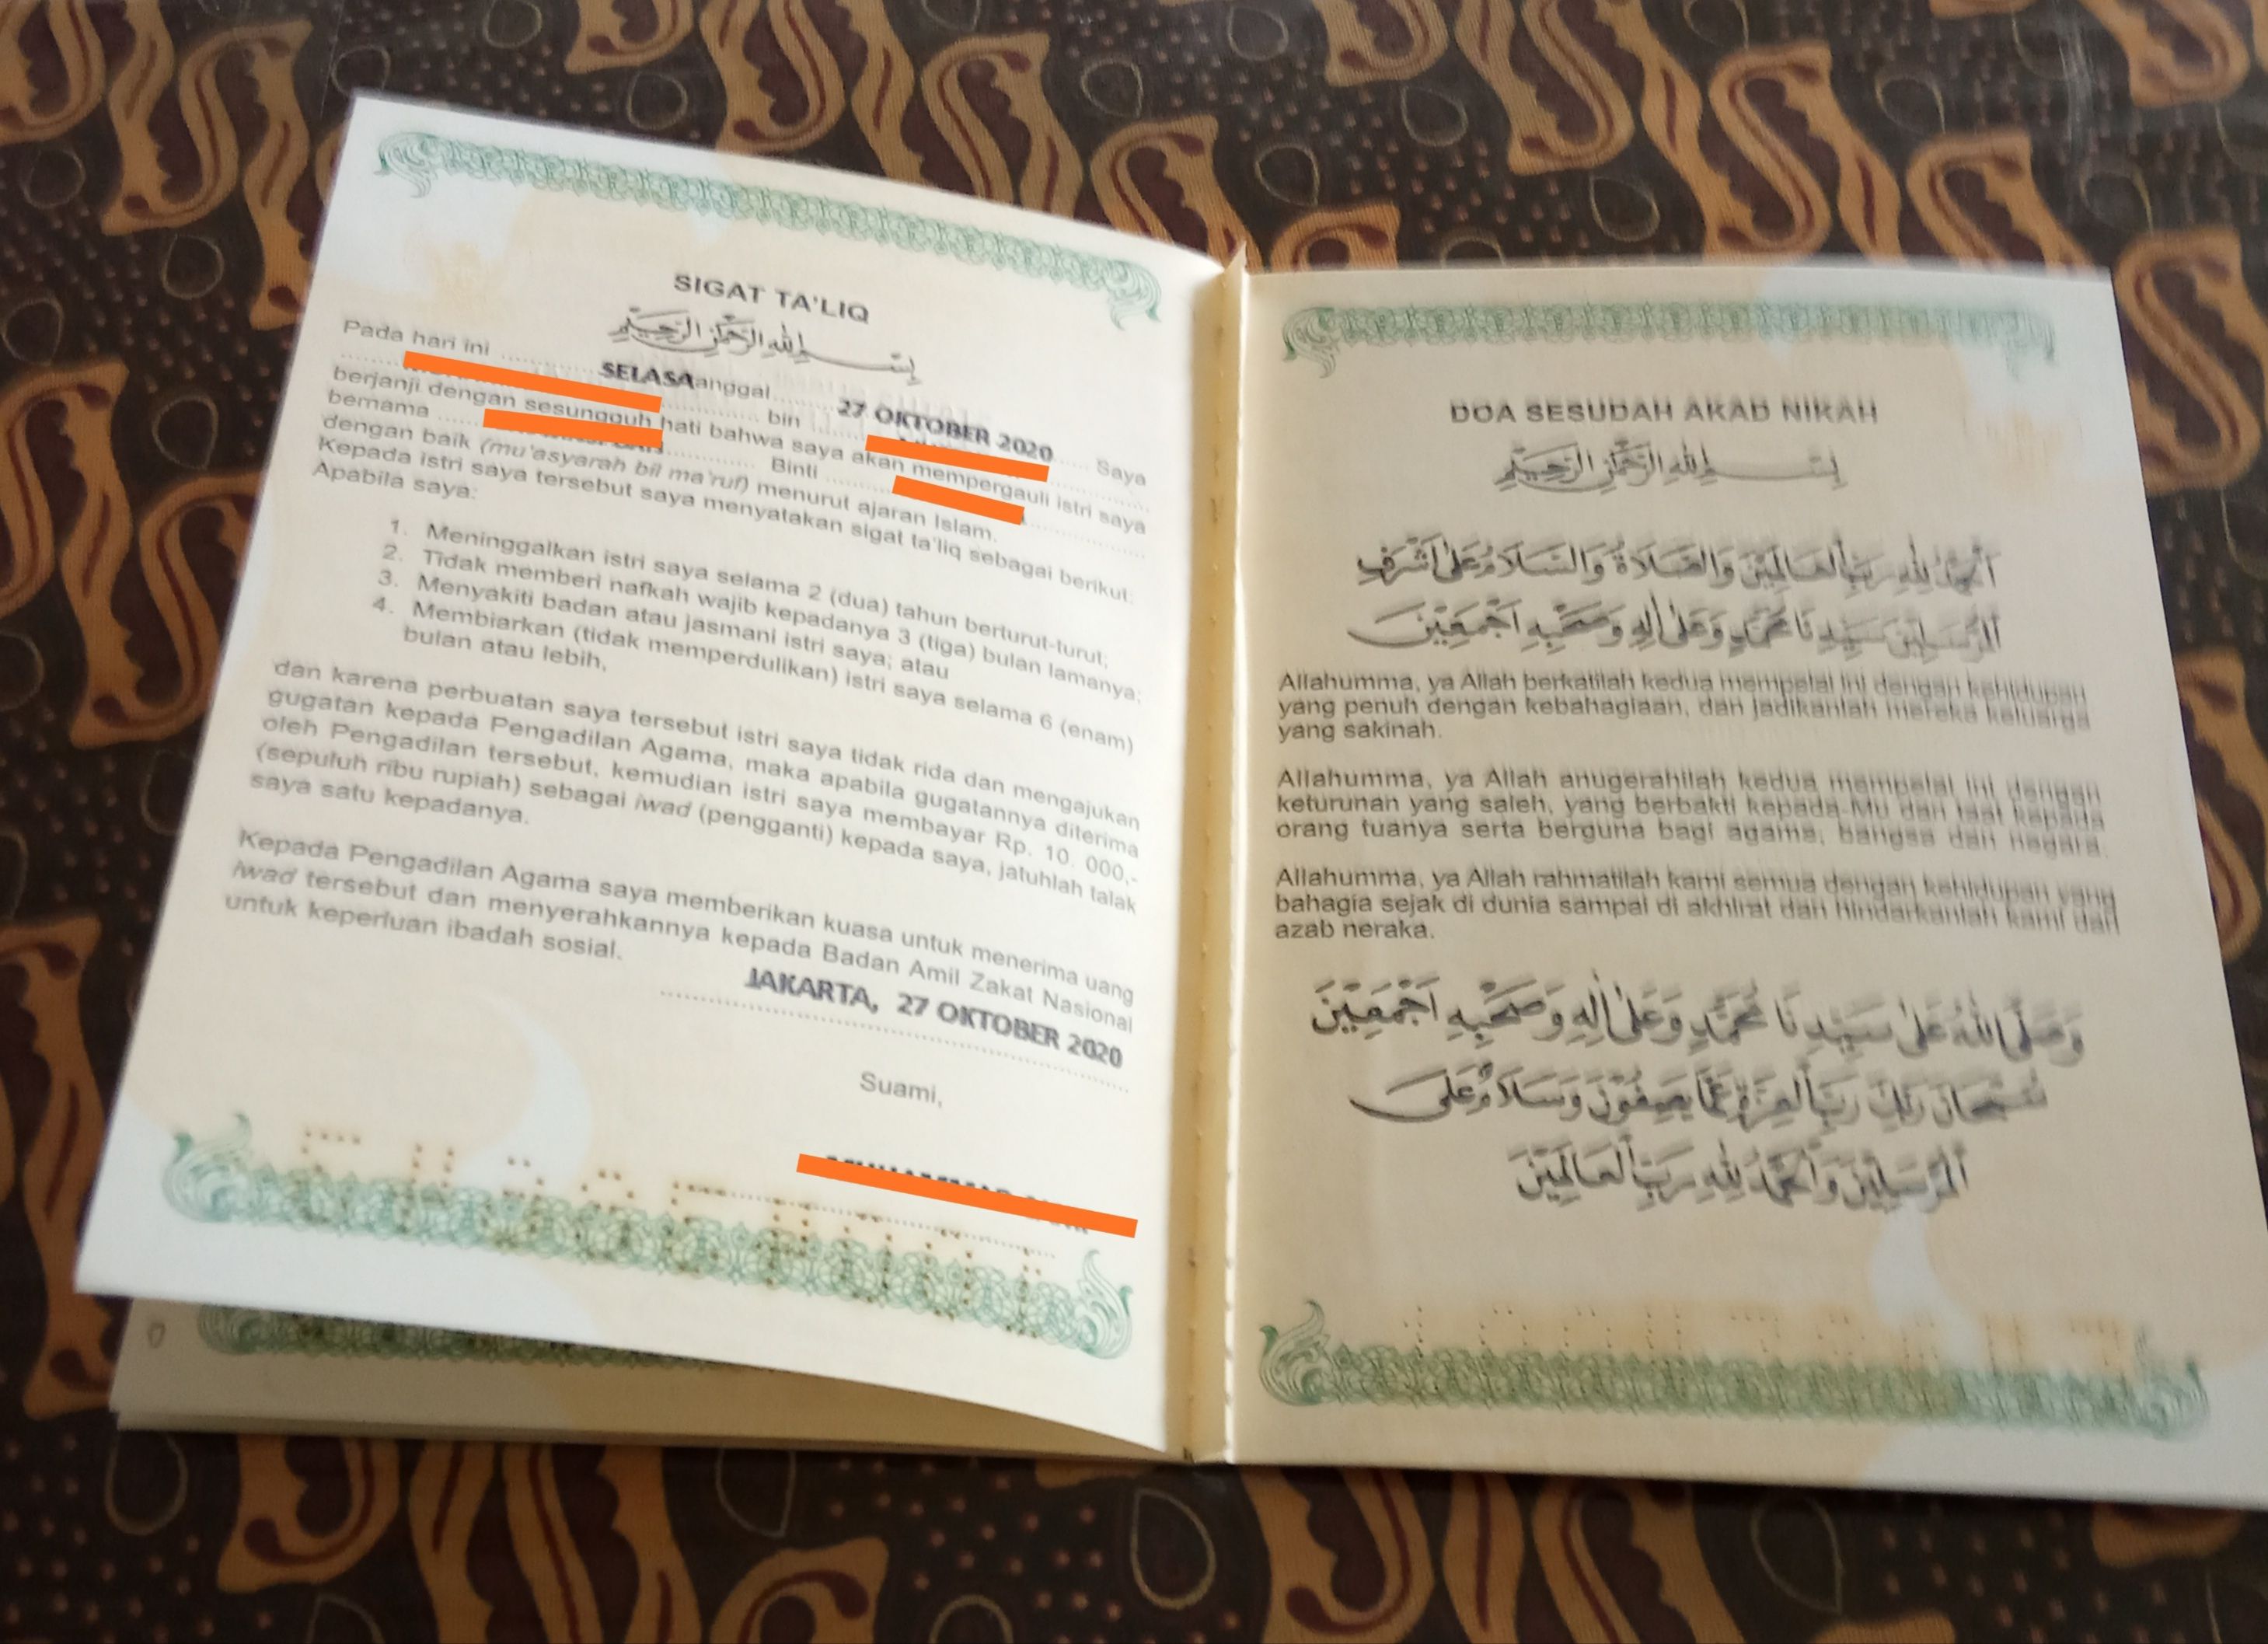 SIGAT TA'LIQ
بِسْمِ اللهِ الرَّحْمٰنِ الرَّحِيْمِ
Pada hari ini ............ SELASAanggal ........ 27 OKTOBER 2020 ..... Saya
............ bin ............
berjanji dengan sesungguh hati bahwa saya akan mempergauli istri saya
bernama ............ Binti ............
dengan baik (mu'asyarah bil ma'ruf) menurut ajaran Islam.
Kepada istri saya tersebut saya menyatakan sigat ta'liq sebagai berikut:
Apabila saya:
1. Meninggalkan istri saya selama 2 (dua) tahun berturut-turut;
2. Tidak memberi nafkah wajib kepadanya 3 (tiga) bulan lamanya;
3. Menyakiti badan atau jasmani istri saya; atau
4. Membiarkan (tidak memperdulikan) istri saya selama 6 (enam)
bulan atau lebih,
dan karena perbuatan saya tersebut istri saya tidak rida dan mengajukan
gugatan kepada Pengadilan Agama, maka apabila gugatannya diterima
oleh Pengadilan tersebut, kemudian istri saya membayar Rp. 10. 000,-
(sepuluh ribu rupiah) sebagai iwad (pengganti) kepada saya, jatuhlah talak
saya satu kepadanya.
Kepada Pengadilan Agama saya memberikan kuasa untuk menerima uang
iwad tersebut dan menyerahkannya kepada Badan Amil Zakat Nasional
untuk keperluan ibadah sosial.
JAKARTA, 27 OKTOBER 2020
Suami,
DOA SESUDAH AKAD NIKAH
بِسْمِ اللهِ الرَّحْمٰنِ الرَّحِيْمِ
اَلْحَمْدُ لِلّٰهِ رَبِّ الْعَالَمِيْنَ وَالصَّلَاةُ وَالسَّلَامُ عَلٰى اَشْرَفِ
الْمُرْسَلِيْنَ سَيِّدِنَا مُحَمَّدٍ وَعَلٰى اٰلِهِ وَصَحْبِهِ اَجْمَعِيْنَ
Allahumma, ya Allah berkatilah kedua mempelai ini dengan kehidupan
yang penuh dengan kebahagiaan, dan jadikanlah mereka keluarga
yang sakinah.
Allahumma, ya Allah anugerahilah kedua mempelai ini dengan
keturunan yang saleh, yang berbakti kepada-Mu dan taat kepada
orang tuanya serta berguna bagi agama, bangsa dan negara.
Allahumma, ya Allah rahmatilah kami semua dengan kehidupan yang
bahagia sejak di dunia sampai di akhirat dan hindarkanlah kami dari
azab neraka.
وَصَلَّى اللهُ عَلٰى سَيِّدِنَا مُحَمَّدٍ وَعَلٰى اٰلِهِ وَصَحْبِهِ اَجْمَعِيْنَ
سُبْحَانَ رَبِّكَ رَبِّ الْعِزَّةِ عَمَّا يَصِفُوْنَ وَسَلَامٌ عَلَى
الْمُرْسَلِيْنَ وَالْحَمْدُ لِلّٰهِ رَبِّ الْعَالَمِيْنَ